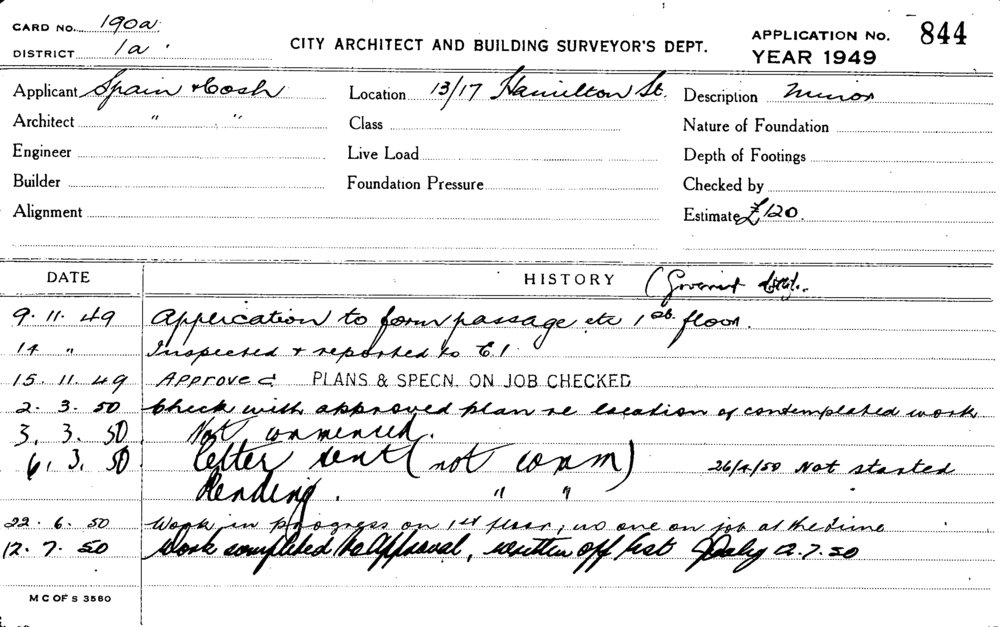 CARD NO. 190a
DISTRICT 1a
CITY ARCHITECT AND BUILDING SURVEYOR'S DEPT.
APPLICATION NO. 844
YEAR 1949
Applicant Spain & Cosh Location 13/17 Hamilton St. Description Minor
Architect " " Class Nature of Foundation
Engineer Live Load Depth of Footings
Builder Foundation Pressure Checked by
Alignment Estimate £120.
DATE HISTORY
9.11.49 Application to form passage etc 1st floor.
14 " Inspected & reported to C.I.
15.11.49 Approved PLANS & SPECN. ON JOB CHECKED
2.3.50 Check with approved plan re location of contemplated work
3.3.50 Not commenced.
6.3.50 letter sent (not comm) 26/4/50 Not started
Pending. " "
22.6.50 Work in progress on 1st floor, no one on job at the time
12.7.50 Work completed to approval, written off list
M C OF S 3560